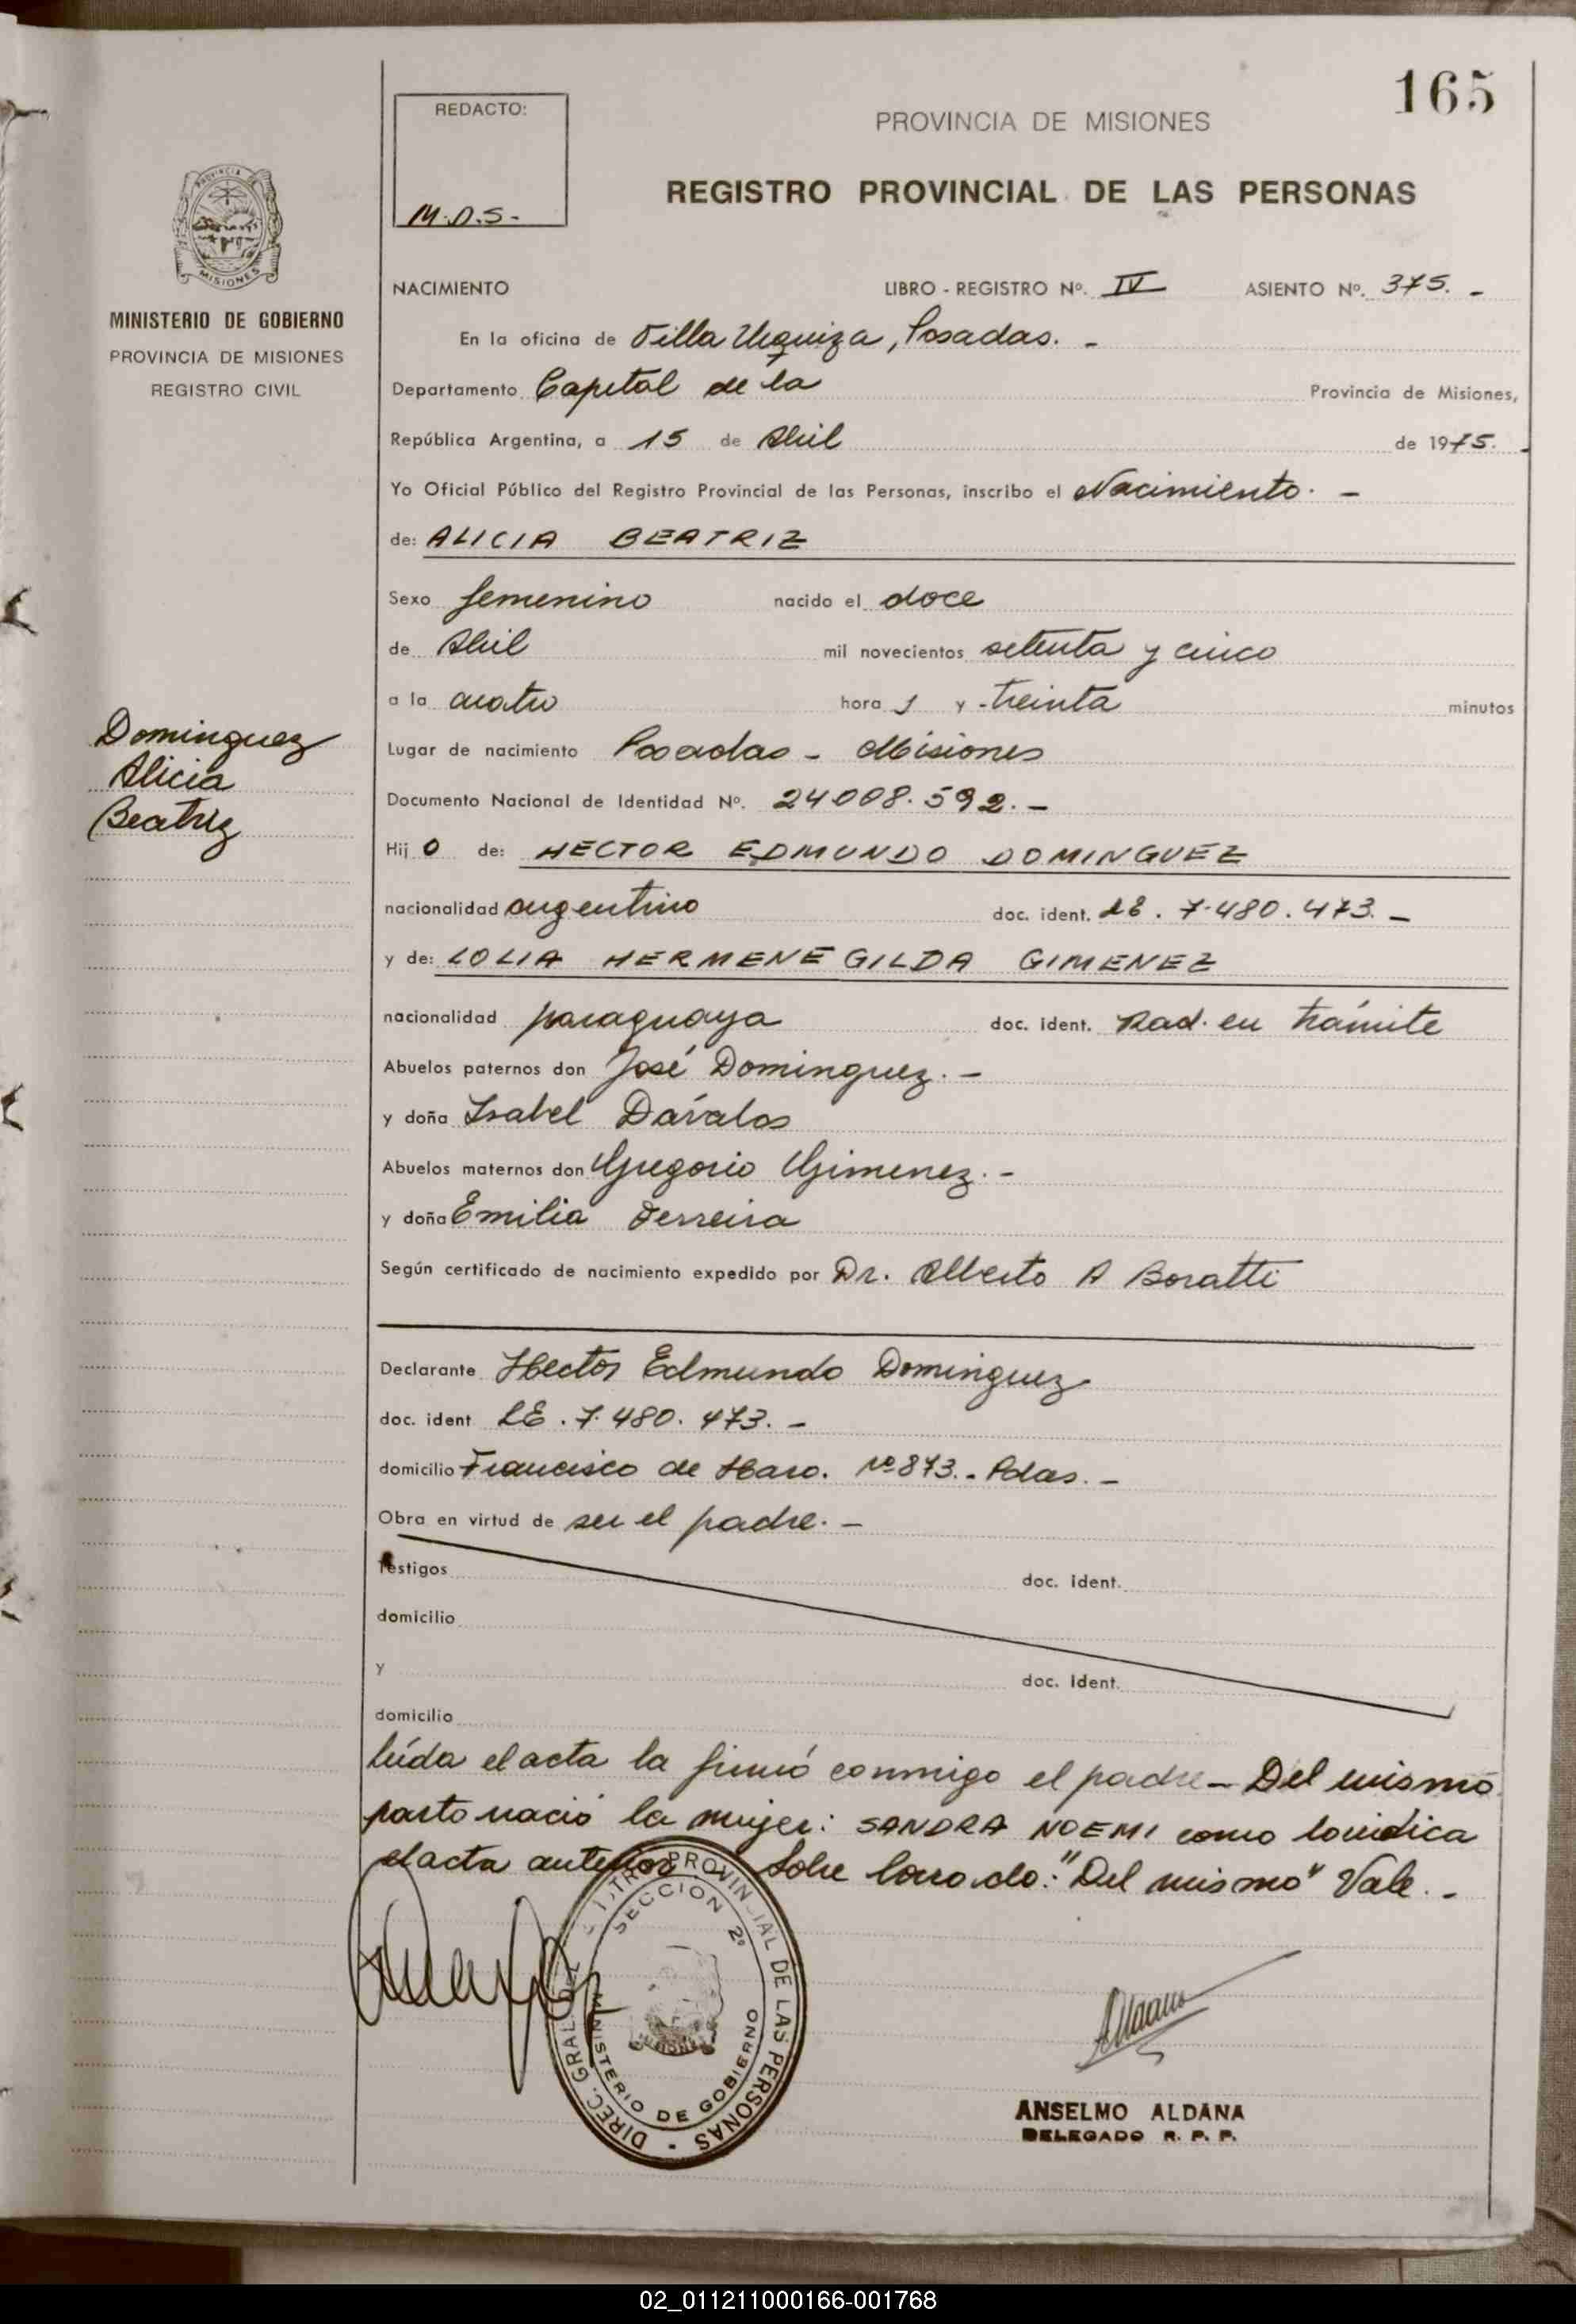 165
REDACTO:
M.D.S.-
PROVINCIA DE MISIONES
REGISTRO PROVINCIAL DE LAS PERSONAS
PROVINCIA DE
MISIONES
MINISTERIO DE GOBIERNO
PROVINCIA DE MISIONES
REGISTRO CIVIL
NACIMIENTO LIBRO - REGISTRO Nº. IV ASIENTO Nº. 375. -
En la oficina de Villa Urquiza, Posadas. -
Departamento Capital de la Provincia de Misiones,
República Argentina, a 15 de Abril de 1975. -
Yo Oficial Público del Registro Provincial de las Personas, inscribo el Nacimiento. -
de: ALICIA BEATRIZ
Sexo femenino nacido el doce
de Abril mil novecientos setenta y cinco
a la cuatro hora s y treinta minutos
Domínguez
Alicia
Beatriz
Lugar de nacimiento Posadas - Misiones
Documento Nacional de Identidad Nº. 24008.592. -
Hij o de: HECTOR EDMUNDO DOMINGUEZ
nacionalidad argentino doc. ident. LE. 7.480.473. -
y de: LOLIA HERMENEGILDA GIMENEZ
nacionalidad paraguaya doc. ident. Rad. en trámite
Abuelos paternos don José Dominguez. -
y doña Isabel Dávalos
Abuelos maternos don Gregorio Gimenez. -
y doña Emilia Ferreira
Según certificado de nacimiento expedido por Dr. Alberto A Boratti
Declarante Hector Edmundo Dominguez
doc. ident LE. 7.480.473. -
domicilio Francisco de Haro. Nº 873. - Pdas. -
Obra en virtud de ser el padre. -
Testigos doc. ident.
domicilio
y doc. Ident.
domicilio
leída el acta la firmó conmigo el padre - Del mismo
parto nació la mujer: SANDRA NOEMI como lo indica
el acta anterior Sobre borrado: "Del mismo" Vale. -
DIREC. GRAL. DEL REGISTRO PROVINCIAL DE LAS PERSONAS -
SECCION 2º
MINISTERIO DE GOBIERNO
MISIONES
Aldana
ANSELMO ALDANA
DELEGADO R. P. P.
02_011211000166-001768